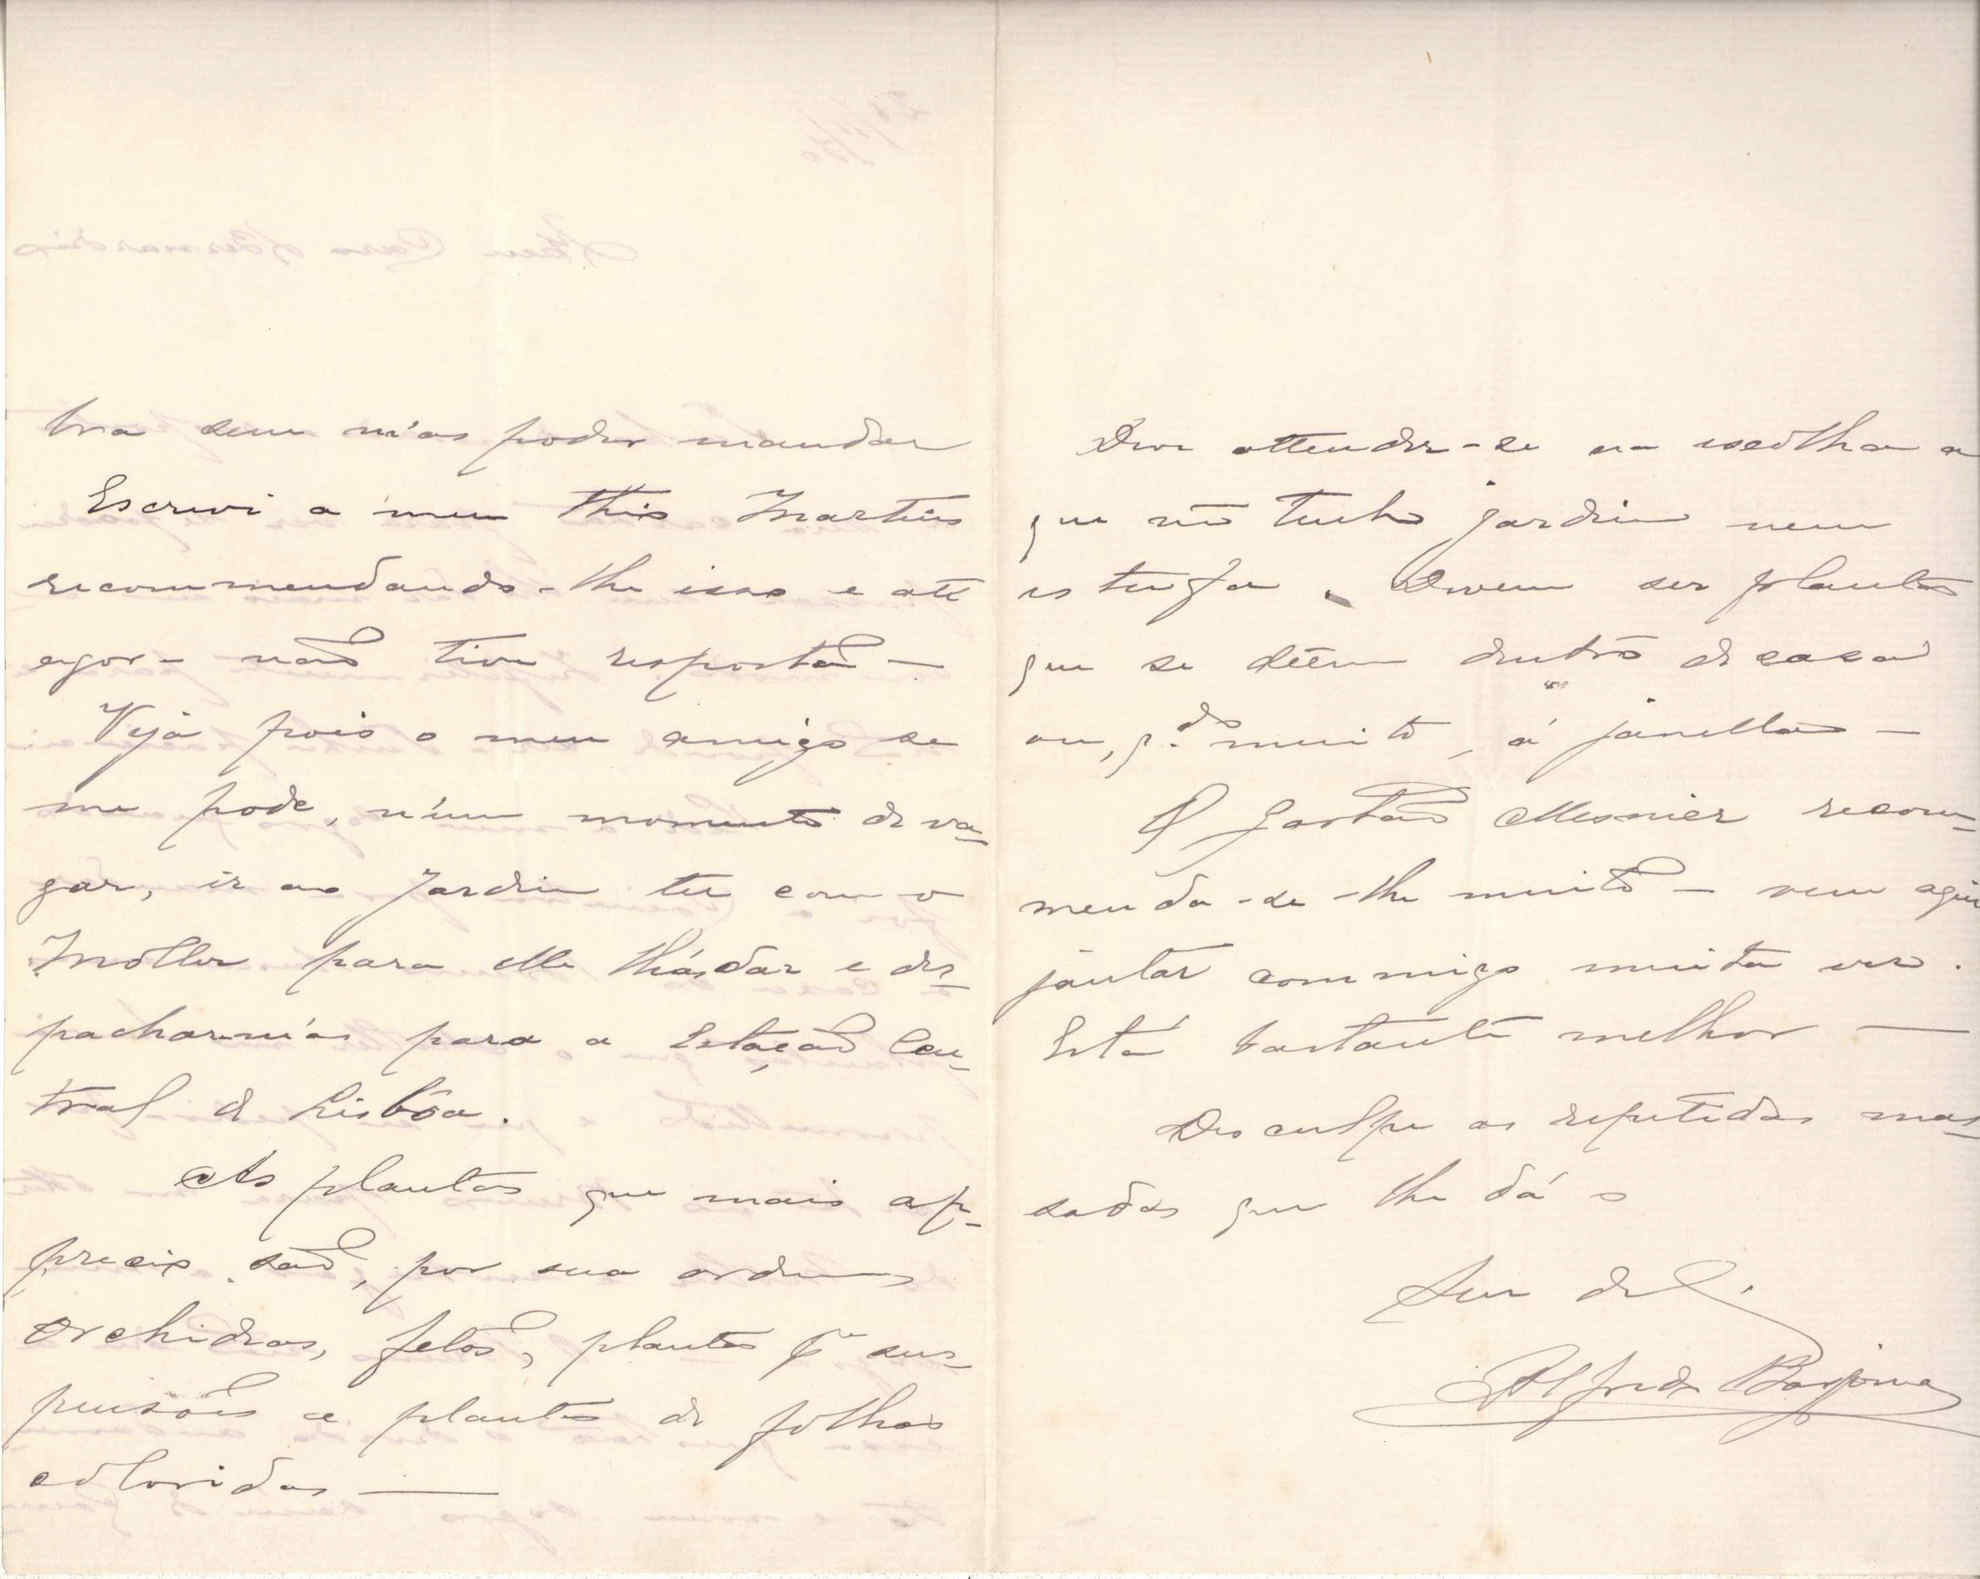 bra sem m'as poder mandar
Escrevi a meu thio Martins
recommendando-lhe isso e até
agora não tive resposta —
Veja pois o meu amigo se
me pode, n'um momento de va-
gar, ir ao Jardim ter com o
Moller para elle lh'as dar e des-
pachar-m'as para a Estação Cen-
tral de Lisbôa.
As plantas que mais ap-
precio são, por sua ordem,
orchideas, fetos, plantas p.ª sus-
pensões e plantas de folhas
coloridas —
Deve attender-se na escolha a
que não tenho jardim nem
estufa. Devem ser plantas
que se dêem dentro de casa
ou, q.do muito, á janella —
O Gastão Mesnier recom-
menda-se-lhe muito — vem aqui
jantar commigo muita vez.
Está bastante melhor —
Desculpe as repetidas mas-
sadas que lhe dá o
Seu del.
Alfredo Barjona